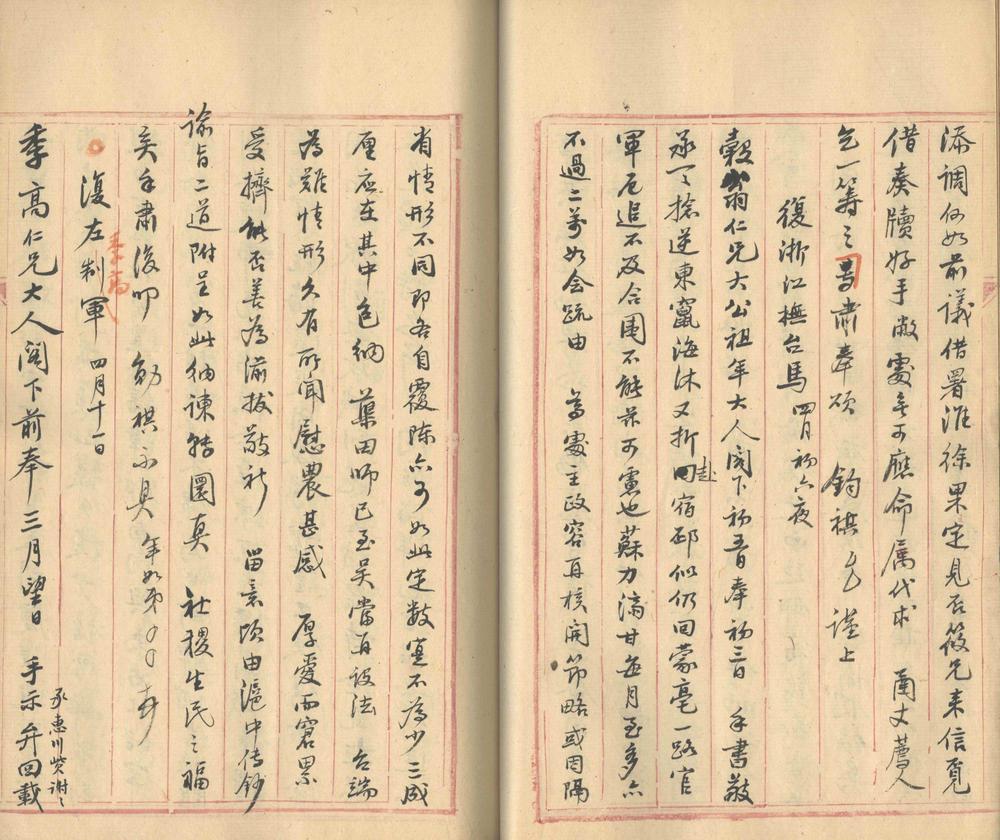 添調仍如前議借署淮徐果定見否筱兄来信覓
借奏牘好手敝處無可應命属代求 爵丈薦人
乞一籌之専肅奉頌 鈞祺 名謹上
復浙江撫台馬 四月初六夜
穀翁仁兄大公祖年大人閣下初五日奉初三日 手書敬
承一一捻逆東竄海沐又折赴宿邳似仍回蒙亳一路官
軍尾追不及合圍不能兹可慮也蘇力滴甘每月至多亦
不過二万如会疏由 尊處主政容再核開節略或因隔
省情形不同即各自覆陳亦可如此定数寔不為少三成
厘應在其中也細 蕖田師已至吴當再设法 台端
為難情形久有所闻慰農甚感 厚愛而窘累
受擠能否善為滿拔敬祈 留意顷由滬中传鈔
諭旨二道附呈如此纳諫转圜真 社稷生民之福
矣手肅復叩 勋棋不具 年如弟 頓首
復左制軍 四月十一日
季高
季高仁兄大人阁下前奉三月望日 手示并回载
承惠川贶谢谢